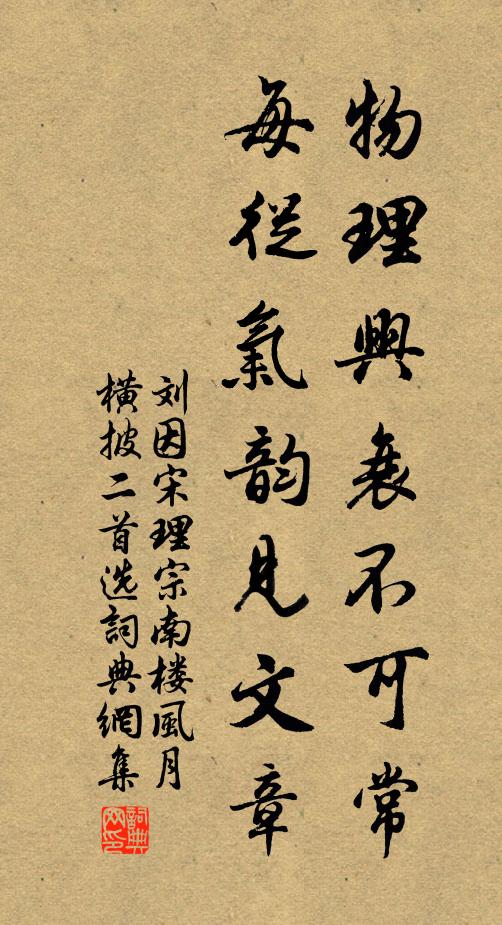 物理興衰不可常
每從氣韵見文章
刘因宋理宗南楼風月
横披二首选詞典網集
詞典
网印